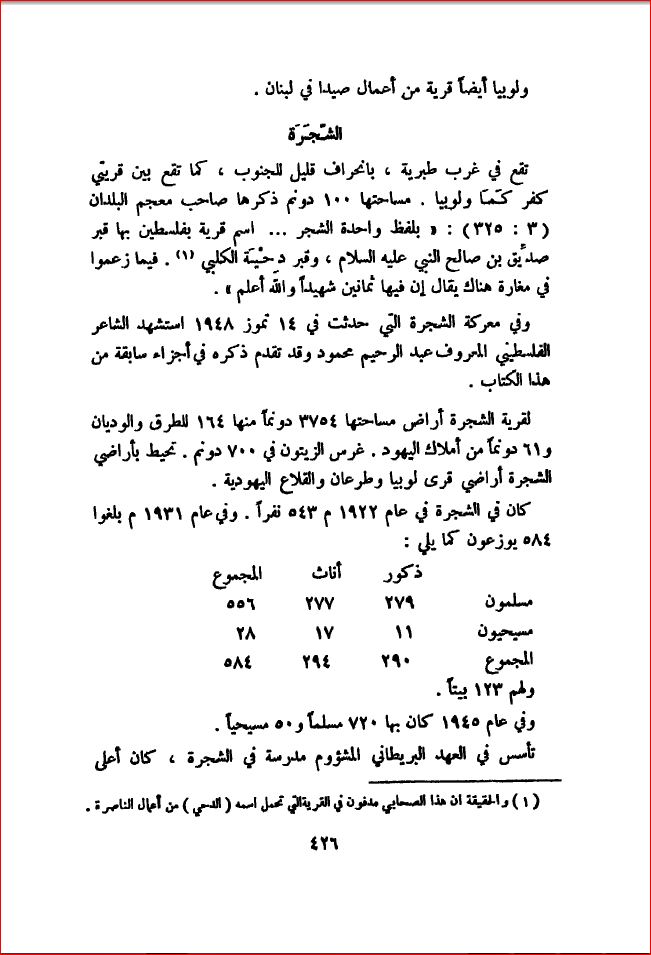 ولوبيا أيضاً قرية من أعمال صيدا في لبنان .
الشَّجَرَة
تقع في غرب طبرية ، بانحراف قليل للجنوب ، كما تقع بين قريتي
كفر كَمَا ولوبيا . مساحتها ١٠٠ دونم ذكرها صاحب معجم البلدان
( ٣ : ٣٢٥ ) : « بلفظ واحدة الشجر ... اسم قرية بفلسطين بها قبر
صدِّيق بن صالح النبي عليه السلام ، وقبر دحْيَة الكلبي (١) . فيما زعموا
في مغارة هناك يقال إن فيها ثمانين شهيداً والله أعلم » .
وفي معركة الشجرة التي حدثت في ١٤ تموز ١٩٤٨ استشهد الشاعر
الفلسطيني المعروف عبد الرحيم محمود وقد تقدم ذكره في أجزاء سابقة من
هذا الكتاب .
لقرية الشجرة أراض مساحتها ٣٧٥٤ دونماً منها ١٦٤ للطرق والوديان
و٦١ دونماً من أملاك اليهود . غرس الزيتون في ٧٠٠ دونم . تحيط بأراضي
الشجرة أراضي قرى لوبيا وطرعان والقلاع اليهودية .
كان في الشجرة في عام ١٩٢٢ م ٥٤٣ نفراً . وفي عام ١٩٣١ م بلغوا
٥٨٤ يوزعون كما يلي :
ذكور أناث المجموع
مسلمون ٢٧٩ ٢٧٧ ٥٥٦
مسيحيون ١١ ١٧ ٢٨
المجموع ٢٩٠ ٢٩٤ ٥٨٤
ولهم ١٢٣ بيتاً .
وفي عام ١٩٤٥ كان بها ٧٢٠ مسلماً و٥٠ مسيحياً .
تأسس في العهد البريطاني المشؤوم مدرسة في الشجرة ، كان أعلى
( ١ ) والحقيقة ان هذا الصحابي مدفون في القرية التي تحمل اسمه ( الدحي ) من أعمال الناصرة .
٤٢٦